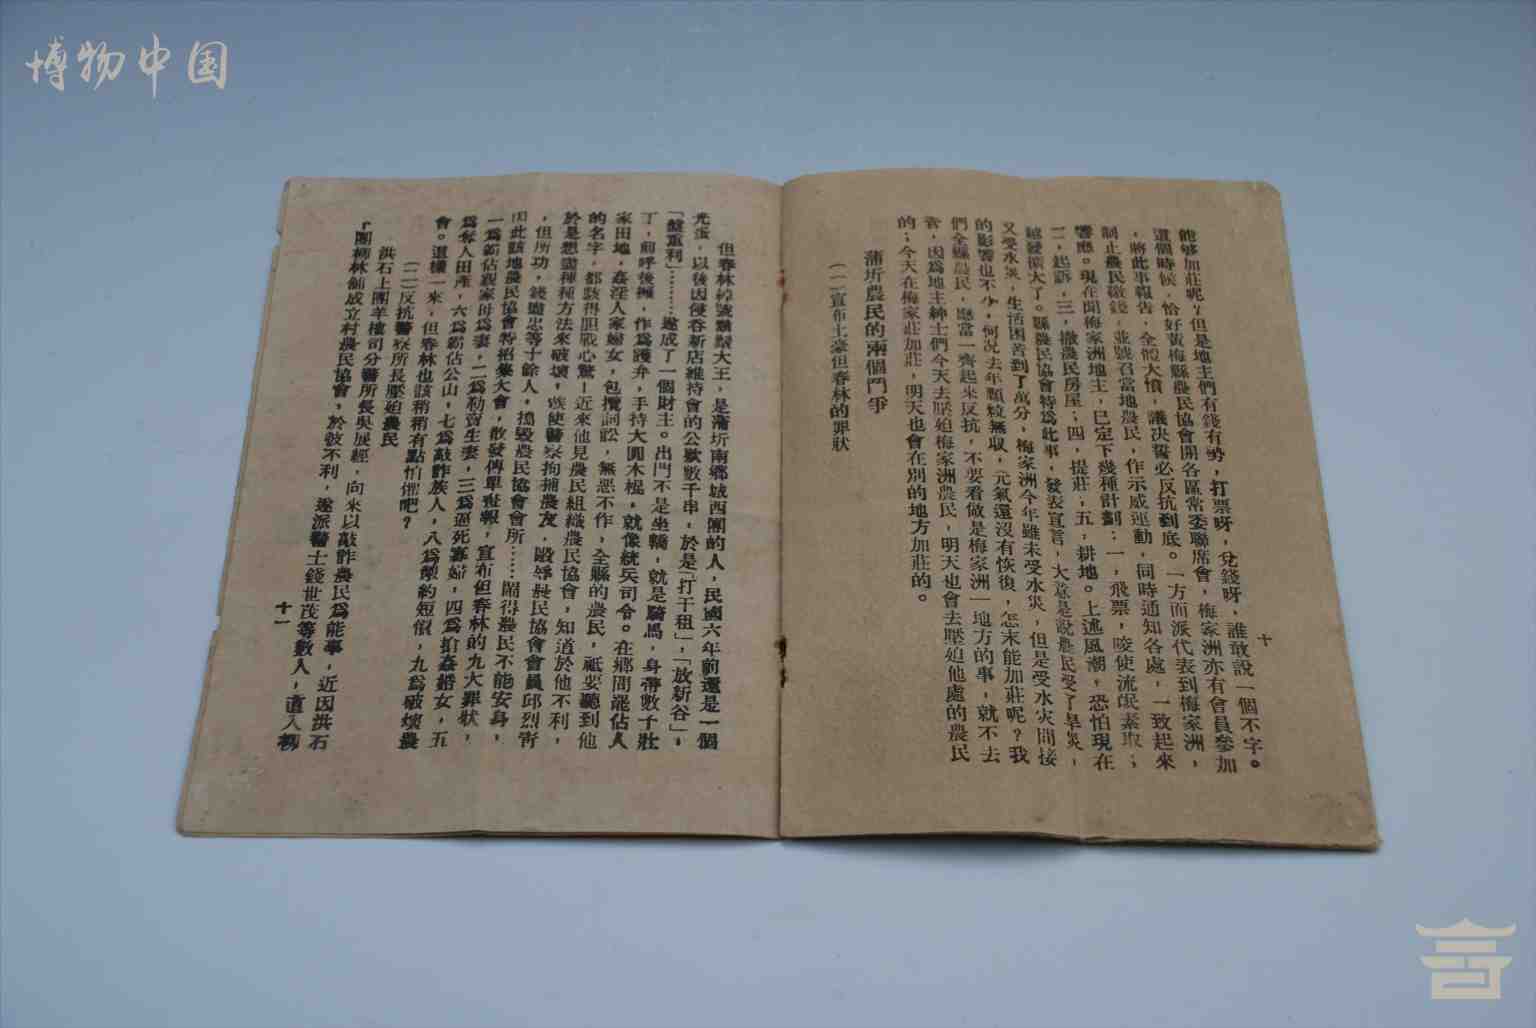 博物中国
十
能够加莊呢？但是地主們有錢有勢，打票呀，兌錢呀，誰敢說一個不字。
這個時候，恰好黃梅縣農民協會開各區常委聯席會，梅家洲亦有會員參加
，將此事報告，全體大憤，議决誓必反抗到底。一方面派代表到梅家洲，
制止農民繳錢，並號召當地農民，作示威運動，同時通知各處，一致起來
響應。現在聞梅家洲地主，已定下幾種計劃：一，飛票，唆使流氓素取；
二，起訴，三，撤農民房屋；四，提莊；五，耕地。上述風潮，恐怕現在
越發擴大了。縣農民協會特爲此事，發表宣言，大意是說農民受了旱災，
又受水災，生活困苦到了萬分，梅家洲今年雖未受水災，但是受水災間接
的影響也不少，何况去年顆粒無収，元氣還沒有恢復，怎末能加莊呢？我
們全縣農民，應當一齊起來反抗，不要看做是梅家洲一地方的事，就不去
管，因爲地主紳士們今天去壓迫梅家洲農民，明天也會去壓迫他處的農民
的；今天在梅家莊加莊，明天也會在別的地方加莊的。
蒲圻農民的兩個鬥爭
（一）宣布土豪但春林的罪狀
但春林綽號鬍鬚大王，是蒲圻南鄉城西團的人，民國六年前還是一個
光蛋，以後因侵吞新店維持會的公欵數千串，於是「打干租」，「放新谷」，
「盤重利」………遂成了一個財主。出門不是坐轎，就是騎馬，身帶數子壯
丁，前呼後擁，作爲護弁，手持大圓木棍，就像統兵司令。在鄉間罷佔人
家田地，姦淫人家婦女，包攬詞訟，無惡不作，全縣的農民，祇要聽到他
的名字，都駭得胆戰心驚！近來他見農民組織農民協會，知道於他不利，
於是想盡種種方法來破壞，嗾使警察拘捕農友，毆辱農民協會會員邱烈靑
，但所功，錢盡忠等十餘人，搗毀農民協會會所……鬧得農民不能安身，
因此該地農民協會特招集大會，散發傳單報，宣布但春林的九大罪狀，
一爲霸佔親家母爲妻，二爲勒賣生妻，三爲逼死寡婦，四爲搶姦婚女，五
爲奪人田產，六爲霸佔公山，七爲敲詐族人，八爲僞約短價，九爲破壞農
會。這樣一來，但春林也該稍稍有點怕懼吧？
（二）反抗警察所長壓迫農民
洪石上團羊樓司分警所長吳展經，向來以敲詐農民爲能事，近因洪石
「團柳林舖成立村農民協會，於彼不利，遂派警士錢世茂等數人，道入柳
十一